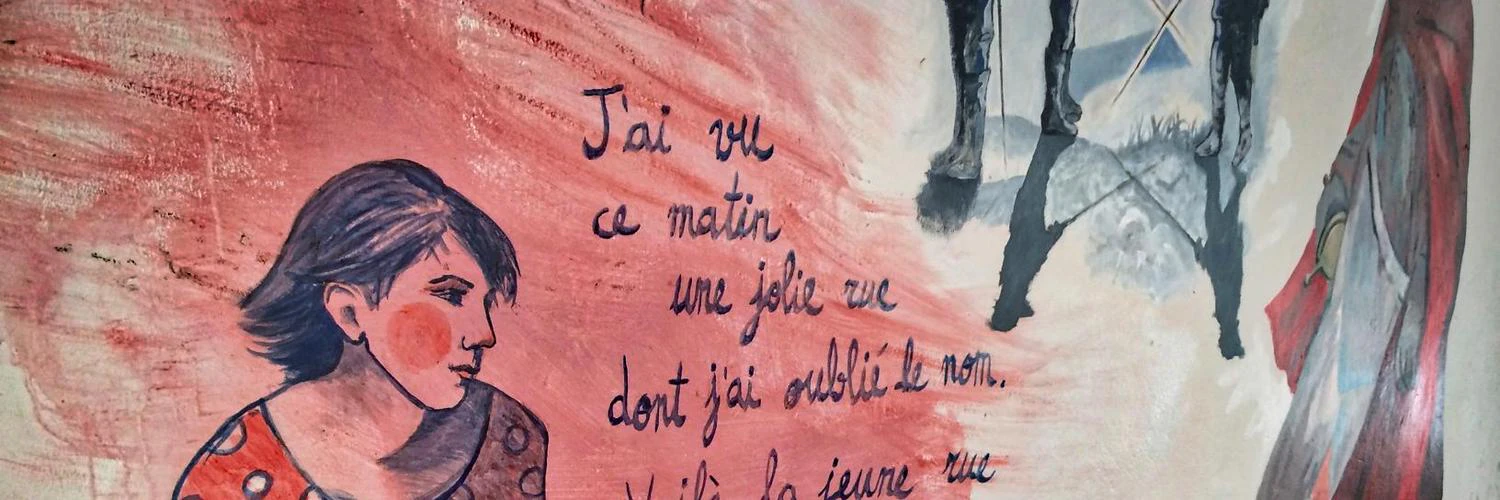 J'ai vu
ce matin
une jolie rue
dont j'ai oublié le nom.
Voilà la jeune rue